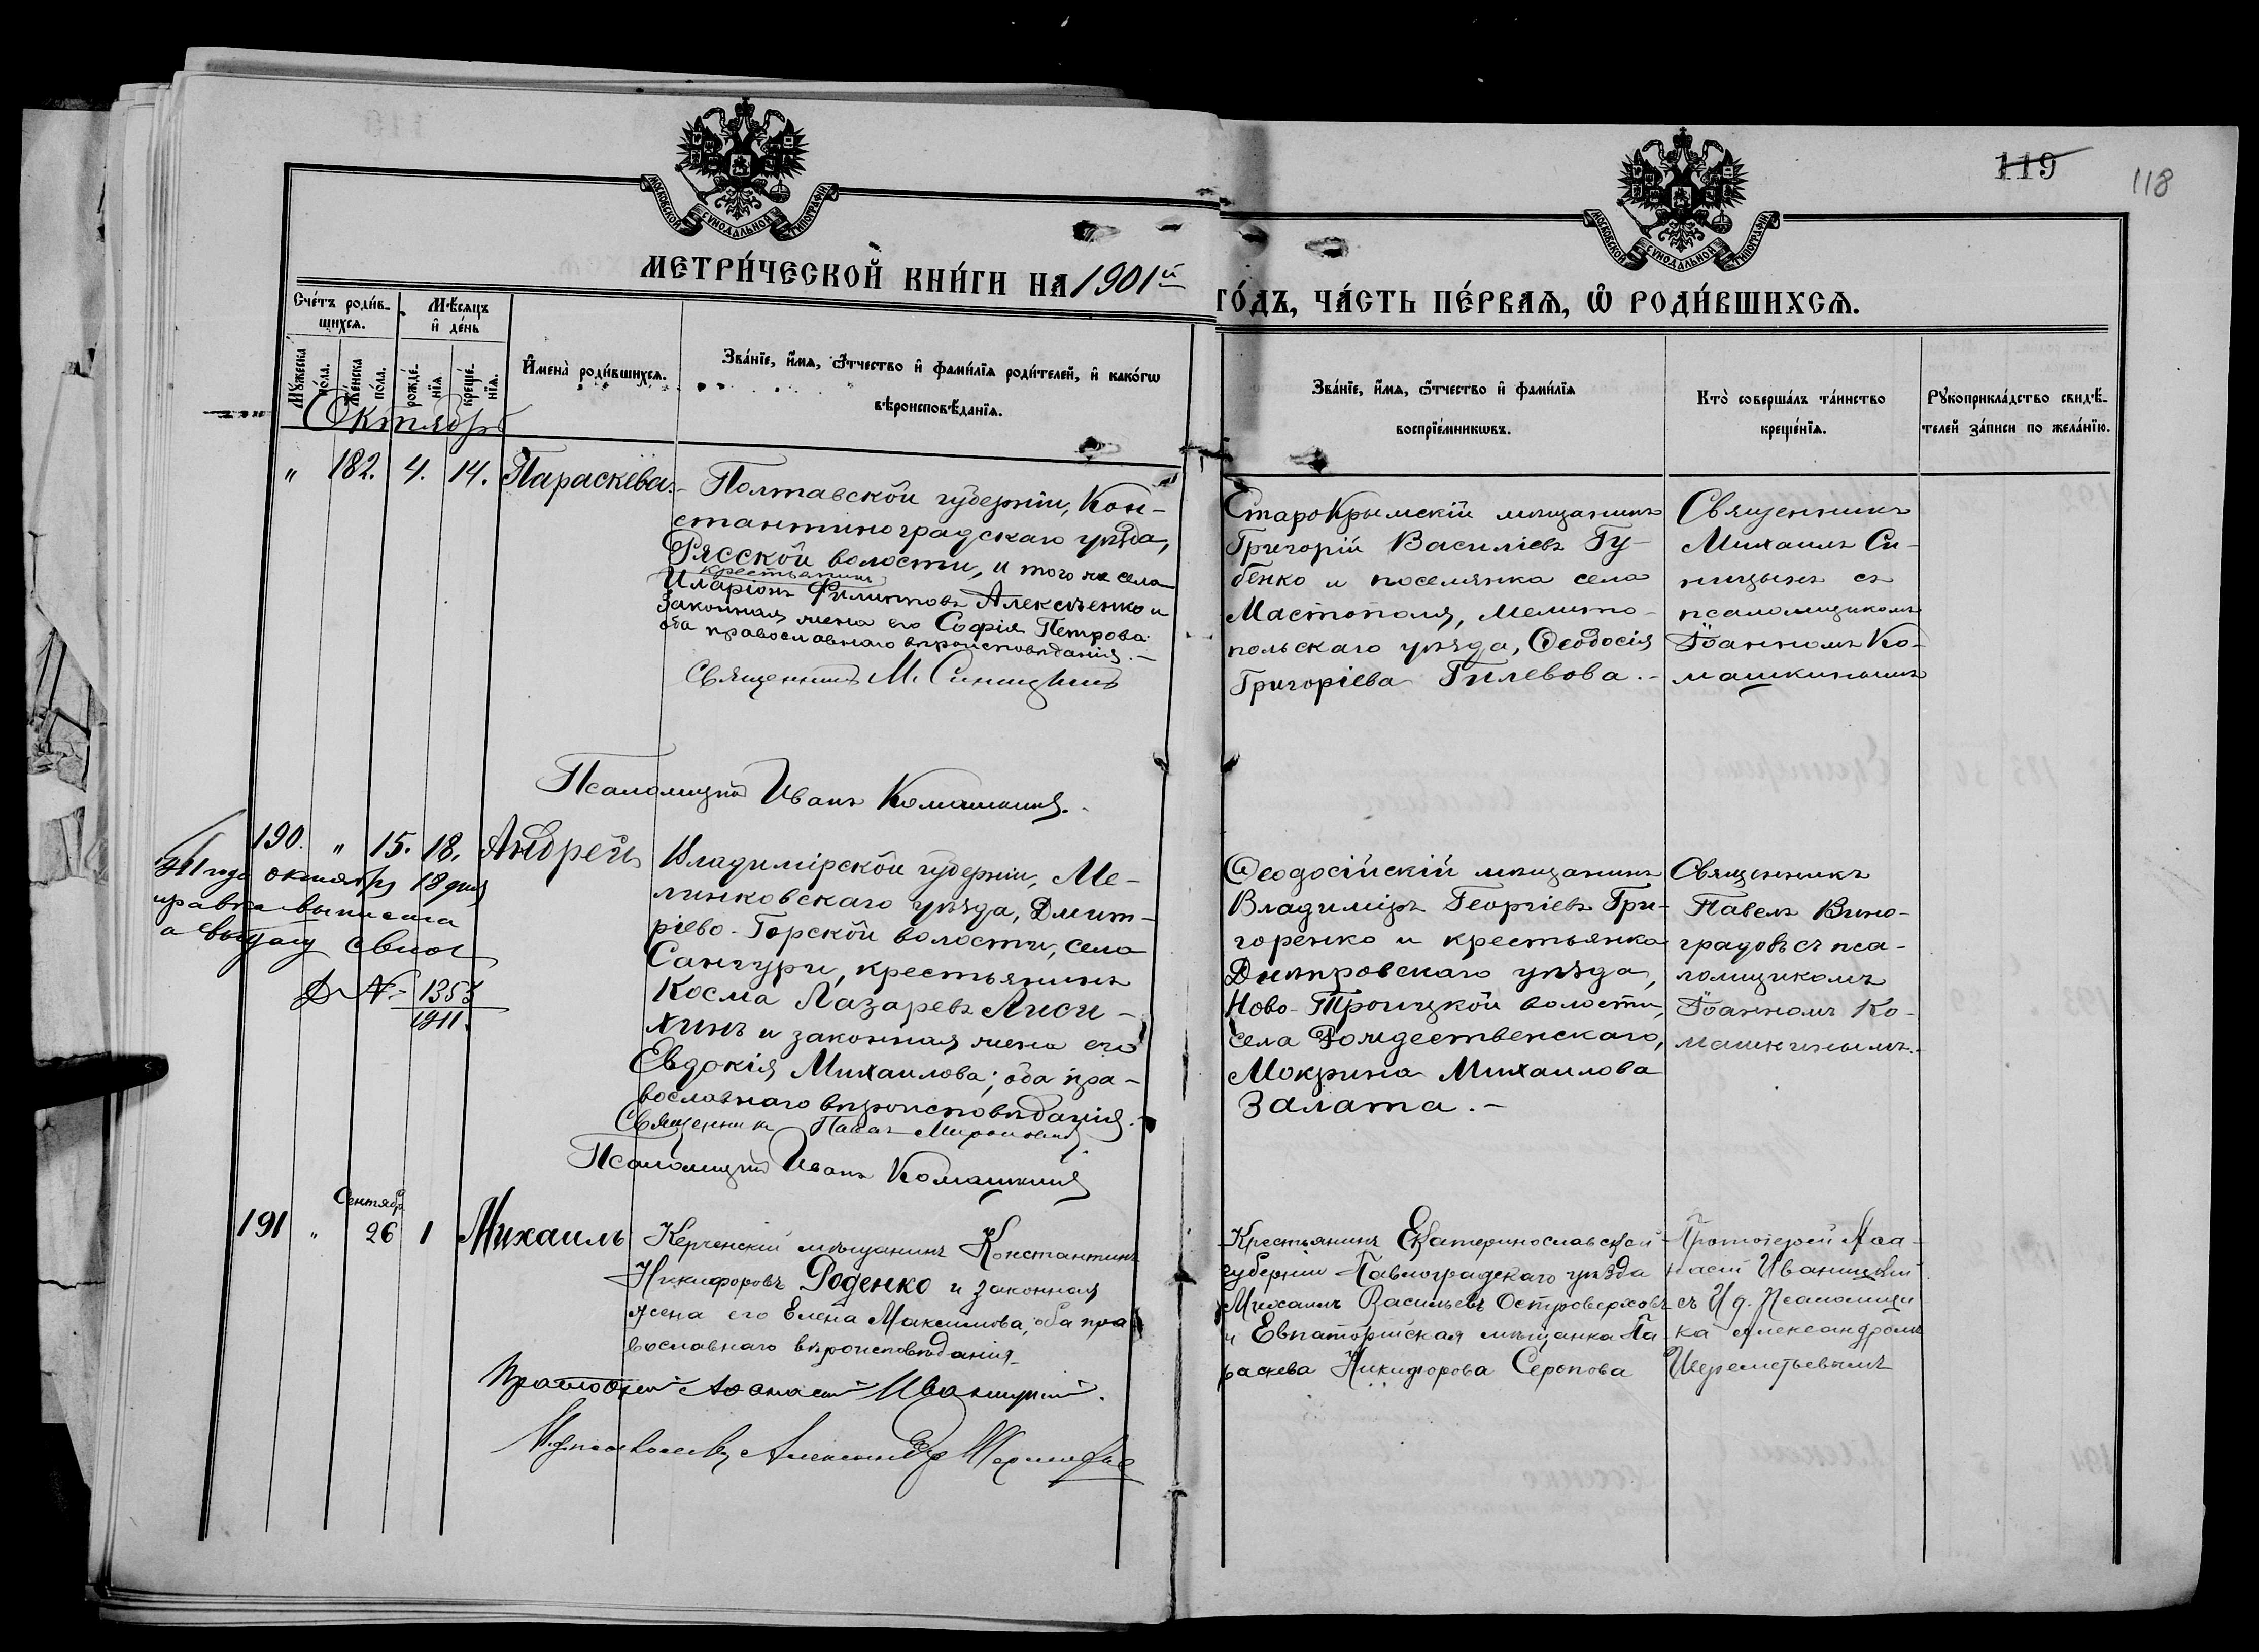 119
118
МОСКОВСКОЙ СУНОДАЛЬНОЙ ТИПОГРАФІИ
МОСКОВСКОЙ СУНОДАЛЬНОЙ ТИПОГРАФІИ
МЕТРИ́ЧЕСКОЙ КНИ́ГИ НА 1901й
ГО́ДЪ, ЧА́СТЬ ПЕ́РВАѦ, Ѽ РОДИ́ВШИХСѦ.
Сче́тъ роди́в-
шихсѧ.
Мѣ́сѧцъ
и҆ де́нь
Мꙋ́жеска
по́ла.
Же́нска
по́ла.
рожде́-
нїѧ
креще́-
нїѧ.
И҆мена̀ роди́вшихсѧ.
Зва́нїе, и҆́мѧ, ѻ҆́тчество и҆ фами́лїѧ роди́телей, и҆ како́гѡ
вѣроисповѣ́данїѧ.
Зва́нїе, и҆́мѧ, ѻ҆́тчество и҆ фами́лїѧ
воспрїе́мникѡвъ.
Кто̀ соверша́лъ та́инство
креще́нїѧ.
Рꙋкоприкла́дство свидѣ́-
телей за́писи по жела́нїю.
Октябрь
" 182. 4. 14. Параскева.
Полтавской губерніи, Кон-
стантиноградскаго уѣзда,
Рясской волости, и того же села
крестьянинъ
Иларіонъ Филипповъ Алексѣенко и
законная жена его Софія Петрова
оба православнаго вѣроисповѣданія.-
Священникъ М. Синицынъ
Псаломщикъ Иванъ Комашкинъ.
Старокрымскій мѣщанинъ
Григорій Василіевъ Гу-
бенко и поселянка села
Мастополя, Мелито-
польскаго уѣзда, Ѳеодосія
Григоріева Гилевова.-
Священникъ
Михаилъ Си-
ницынъ съ
псаломщикомъ
Іоанномъ Ко-
машкинымъ
190. " 15. 18. Андрей
1911 года октября 18 дня
выписка
№ 1353
1911.
Владимірской губерніи, Ме-
линковскаго уѣзда, Дмит-
ріево-Горской волости, села
Санчури, крестьянинъ
Косма Лазаревъ Лиси-
хинъ и законная жена его
Евдокія Михаилова; оба пра-
вославнаго вѣроисповѣданія.
Священникъ Павелъ
Псаломщикъ Иванъ Комашкинъ
Ѳеодосійскій мѣщанинъ
Владиміръ Георгіевъ Гри-
горенко и крестьянка
Днѣпровскаго уѣзда,
Ново-Троицкой волости,
села Рождественскаго,
Мокрина Михаилова
Залата.-
Священникъ
Павелъ Вино-
градовъ съ пса-
ломщикомъ
Іоанномъ Ко-
машкинымъ.
Сентября
191 " 26 1 Михаилъ
Керченскій мѣщанинъ Константинъ
Никифоровъ Роденко и законная
жена его Елена Максимова, оба пра
вославнаго вѣроисповѣданія
Протоіерей Аѳанасій Иваницкій.
Александръ
Крестьянинъ Екатеринославской
губерніи Павлоградскаго уѣзда
Михаилъ Васильевъ Островерховъ
и Евпаторійская мѣщанка Па-
раскева Никифорова Серопова
Протоіерей Аѳа-
насій Иваницкій
съ И д. Псаломщи
ка Александромъ
Шереметьевымъ